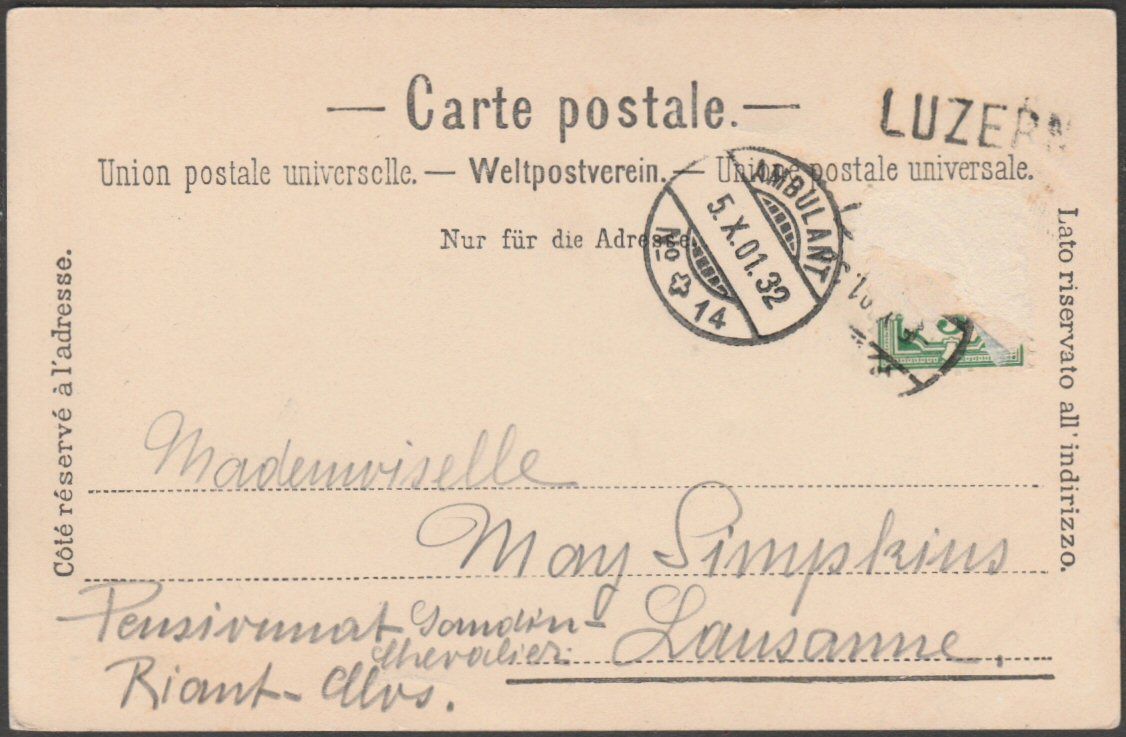 — Carte postale. —
LUZERN
Union postale universelle. — Weltpostverein. — Unione postale universale.
Nur für die Adresse.
AMBULANT
5.X.01.32
No 14
5
Côté réservé à l'adresse.
Lato riservato all' indirizzo.
Mademoiselle
May Simpkins
Pensionnat Gaudin-
Chevalier
Lausanne.
Riant-Clos.